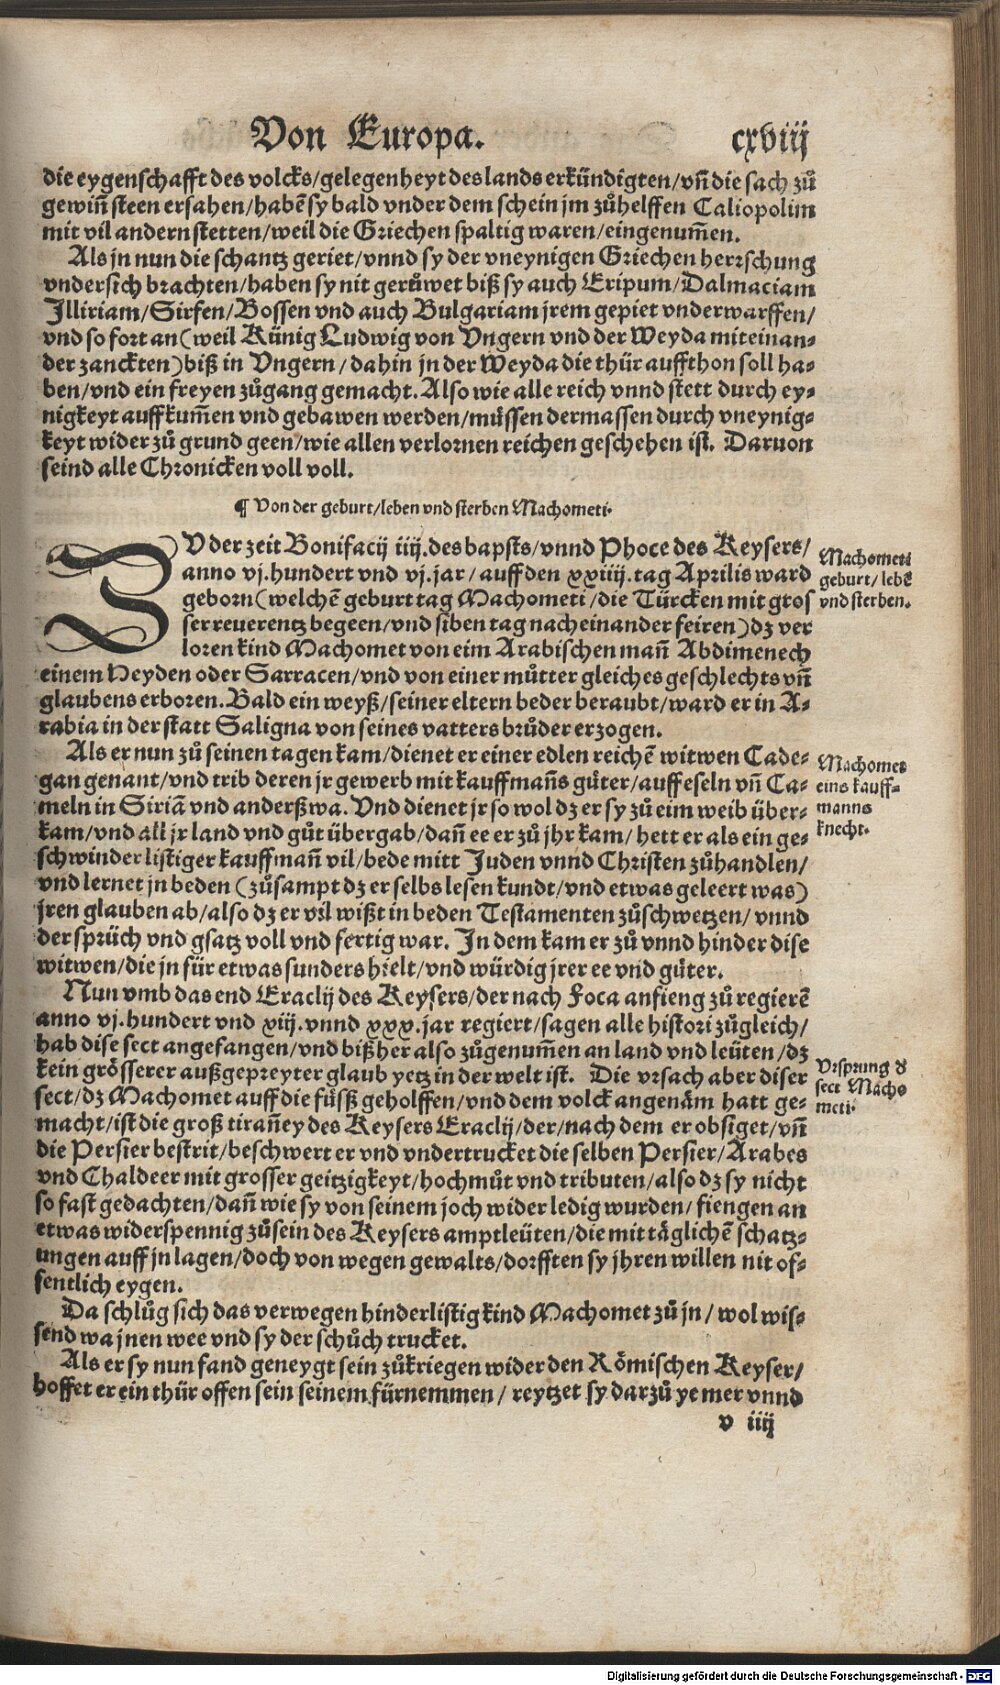 Von Europa. cxviij
die eygenschafft des volcks/gelegenheyt des lands erkündigten/vñ die sach zů
gewiñ steen ersahen/habẽ sy bald vnder dem schein jm zůhelffen Caliopolim
mit vil andern stetten/weil die Griechen spaltig waren/eingenum̃en.
Als jn nun die schantz geriet/vnnd sy der vneynigen Griechen herrschung
vndersich brachten/haben sy nit gerůwet biß sy auch Eripum/Dalmaciam
Illiriam/Sirfen/Bossen vnd auch Bulgariam jrem gepiet vnderwarffen/
vnd so fort an(weil Künig Ludwig von Vngern vnd der Weyda miteinan⸗
der zanckten)biß in Vngern/dahin jn der Weyda die thür auffthon soll ha⸗
ben/vnd ein freyen zůgang gemacht. Also wie alle reich vnnd stett durch ey⸗
nigkeyt auffkum̃en vnd gebawen werden/müssen dermassen durch vneynig⸗
keyt wider zů grund geen/wie allen verlornen reichen geschehen ist. Daruon
seind alle Chronicken voll voll.
¶ Von der geburt/leben vnd sterben Machometi.
ZV der zeit Bonifacij iiij.des bapsts/vnnd Phoce des Keysers/
anno vj.hundert vnd vj.jar/auff den xxiiij.tag Aprilis ward
geborn(welchẽ geburt tag Machometi/die Türcken mit gros
ser reuerentz begeen/vnd siben tag nach einander feiren)dz ver
loren kind Machomet von eim Arabischen mañ Abdimenech
Machometi
geburt/lebẽ
vnd sterben.
einem Heyden oder Sarracen/vnd von einer můtter gleiches geschlechts vñ
glaubens erboren. Bald ein weyß/seiner eltern beder beraubt/ward er in A⸗
rabia in der statt Saligna von seines vatters brůder erzogen.
Als er nun zů seinen tagen kam/dienet er einer edlen reichẽ witwen Cade⸗
gan genant/vnd trib deren jr gewerb mit kauffmañs güter/auff eseln vñ Ca⸗
meln in Siriã vnd anderßwa. Vnd dienet jr so wol dz er sy zů eim weib über⸗
kam/vnd all jr land vnd gůt übergab/dañ ee er zů jhr kam/hett er als ein ge⸗
schwinder listiger kauffmañ vil/bede mitt Juden vnnd Christen zůhandlen/
vnd lernet jn beden (zůsampt dz er selbs lesen kundt/vnd etwas geleert was)
jren glauben ab/also dz er vil wißt in beden Testamenten zůschwetzen/vnnd
der sprüch vnd gsatz voll vnd fertig war. In dem kam er zů vnnd hinder dise
witwen/die jn für etwas sunders hielt/vnd würdig jrer ee vnd güter.
Machomet
eins kauff⸗
manns
knecht.
Nun vmb das end Eraclij des Keysers/der nach Foca anfieng zů regierẽ
anno vj.hundert vnd xiij.vnnd xxx.jar regiert/sagen alle histori zůgleich/
hab dise sect angefangen/vnd bißher also zůgenum̃en an land vnd leüten/dz
kein grösserer außgepreyter glaub yetz in der welt ist. Die vrsach aber diser
sect/dz Machomet auff die fůsß geholffen/vnd dem volck angenäm hatt ge⸗
macht/ist die groß tirañey des Keysers Eraclij/der/nach dem er obsiget/vñ
die Persier bestrit/beschwert er vnd vndertrucket die selben Persier/Arabes
vnd Chaldeer mit grosser geitzigkeyt/hochmůt vnd tributen/also dz sy nicht
so fast gedachten/dañ wie sy von seinem joch wider ledig wurden/fiengen an
etwas widerspennig zůsein des Keysers amptleüten/die mit täglichẽ schatz⸗
ungen auff jn lagen/doch von wegen gewalts/dorfften sy jhren willen nit of⸗
fentlich eygen.
Vrsprung d̕
sect Macho
meti.
Da schlůg sich das verwegen hinderlistig kind Machomet zů jn/wol wis⸗
send wa jnen wee vnd sy der schůch trucket.
Als er sy nun fand geneygt sein zůkriegen wider den Römischen Keyser/
hoffet er ein thür offen sein seinem fürnemmen/reytzet sy darzů ye mer vnnd
v iiij
Digitalisierung gefördert durch die Deutsche Forschungsgemeinschaft - DFG